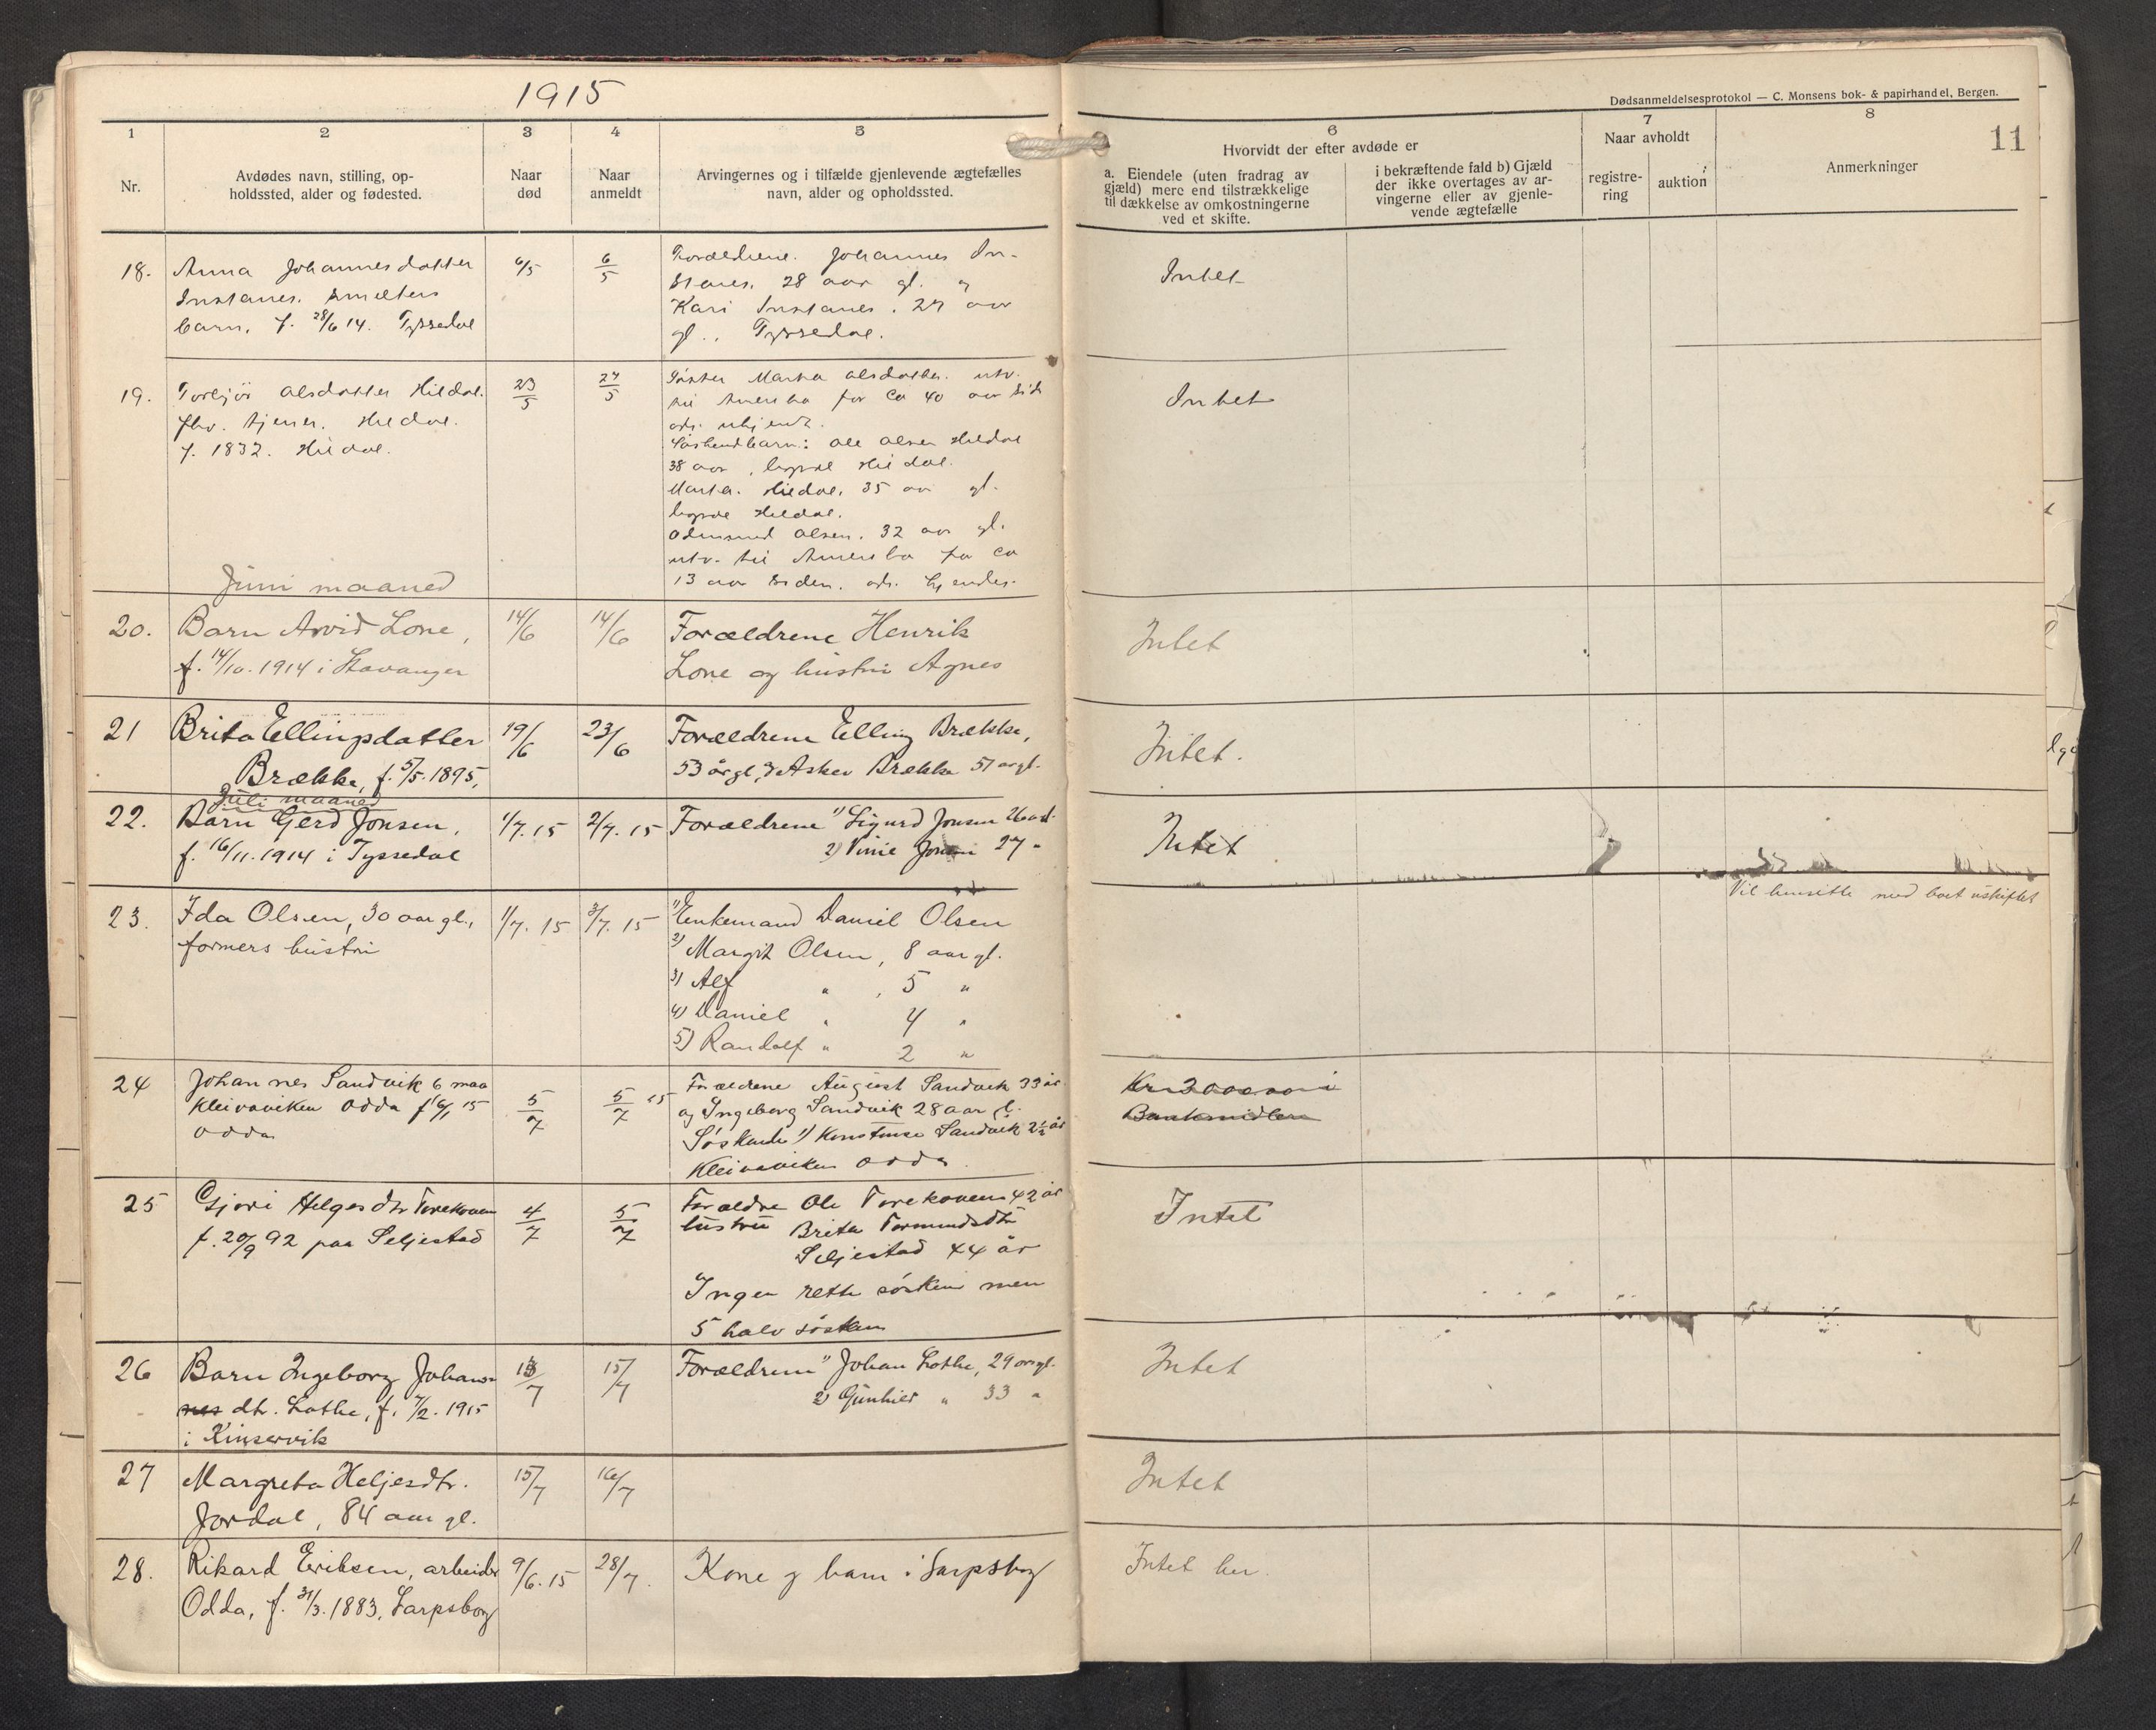 1915
Dødsanmeldelsesprotokol — C. Monsens bok- & papirhandel, Bergen.
11
1 2 3 4 5 6 7 8
Nr.
Avdødes navn, stilling, op-
holdssted, alder og fødested.
Naar
død
Naar
anmeldt
Arvingernes og i tilfælde gjenlevende ægtefælles
navn, alder og opholdssted.
Hvorvidt der efter avdøde er
a. Eiendele (uten fradrag av
gjæld) mere end tilstrækkelige
til dækkelse av omkostningerne
ved et skifte.
i bekræftende fald b) Gjæld
der ikke overtages av ar-
vingerne eller av gjenle-
vende ægtefælle
Naar avholdt
registre-
ring
auktion
Anmerkninger
18.
Anna Johannesdatter
Instanes. smelters
barn. f. 28/6 14. Tyssedal
6/5
6/5
Forældrene. Johannes In-
stanes. 28 aar gl. og
Kari Instanes. 27 aar
gl., Tyssedal.
Intet
19.
Torbjør Olsdatter Hildal.
fhv. tjener. Hildal.
f. 1832. Hildal.
23/5
27/5
Søster Marta Olsdatter. utv.
til Amerika for ca 40 aar sid
adr. ukjendt.
Søskendbarn: Ole Olsen Hildal
38 aar, bopæl Hildal.
Marta. Hildal. 35 aar gl.
bopæl Hildal.
Odmund Olsen. 32 aar gl.
utv. til Amerika for ca
13 aar siden. adr. kjendes.
Intet
Juni maaned
20.
Barn Arvid Lone,
f. 14/10. 1914 i Stavanger
14/6
14/6
Forældrene Henrik
Lone og hustru Agnes
Intet
21
Brita Ellingsdatter
Brække, f. 5/5. 1895,
19/6
23/6
Forældrene Elling Brække,
53 år gl, Brække 51 år gl.
Intet.
Juli maaned
22.
Barn Gerd Jonsen,
f. 16/11. 1914 i Tyssedal
1/7. 15
2/7. 15
Forældrene 1) Sigurd Jonsen 26 aar
2) Vinie Jonsen 27 "
Intet
23.
Ida Olsen, 30 aar gl.,
formers hustru
1/7. 15
3/7. 15
1) Enkemand Daniel Olsen
2) Margit Olsen, 8 aar gl.
3) Alf " , 5 "
4) Daniel " 4 "
5) Randolf " 2 "
Vil hensitte med boet uskiftet
24
Johannes Sandvik 6 maa
Kleivaviken Odda f 16/1 15
Odda
5/7
5/7 15
Forældrene August Sandvik 33 år
og Ingeborg Sandvik 28 aar gl.
Søskende 1) Konstanse Sandvik 2½ år
Kleivaviken Odda
Kr 3000.00 i
Bankmidler
25
Gjøri Helgesdtr Torekoven
f. 20/9 92 paa Seljestad
4/7
5/7
Forældre Ole Torekoven 42 år
hustru Brita Tormundsdtr
Seljestad 44 år
Ingen rette søsken men
5 halv søsken
Intet
26
Barn Ingeborg Johans-
nes dtr. Lothe, f. 7/2. 1915
i Kinservik
13/7
15/7
Forældrene 1) Johan Lothe, 29 år gl.
2) Gunhild " 33 "
Intet
27
Margreta Heljesdtr.
Jordal, 84 aar gl.
15/7
16/7
Intet
28.
Rikard Eriksen, arbeider
Odda, f. 31/3. 1883, Sarpsborg
9/6. 15
28/7.
Kone og barn i Sarpsborg
Intet her.